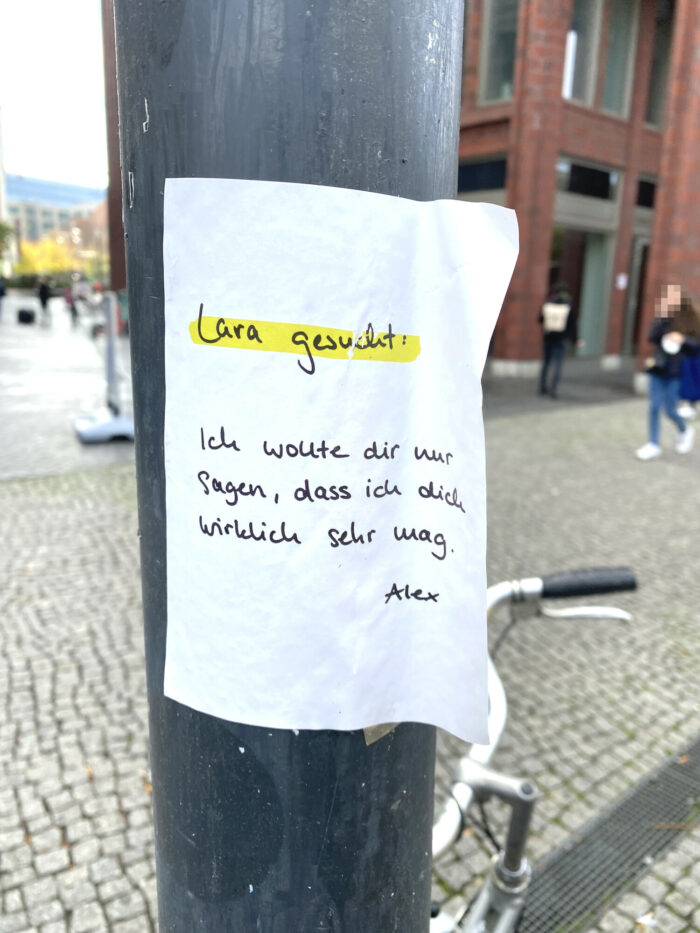 Lara gesucht:
Ich wollte dir nur
Sagen, dass ich dich
wirklich sehr mag.
Alex